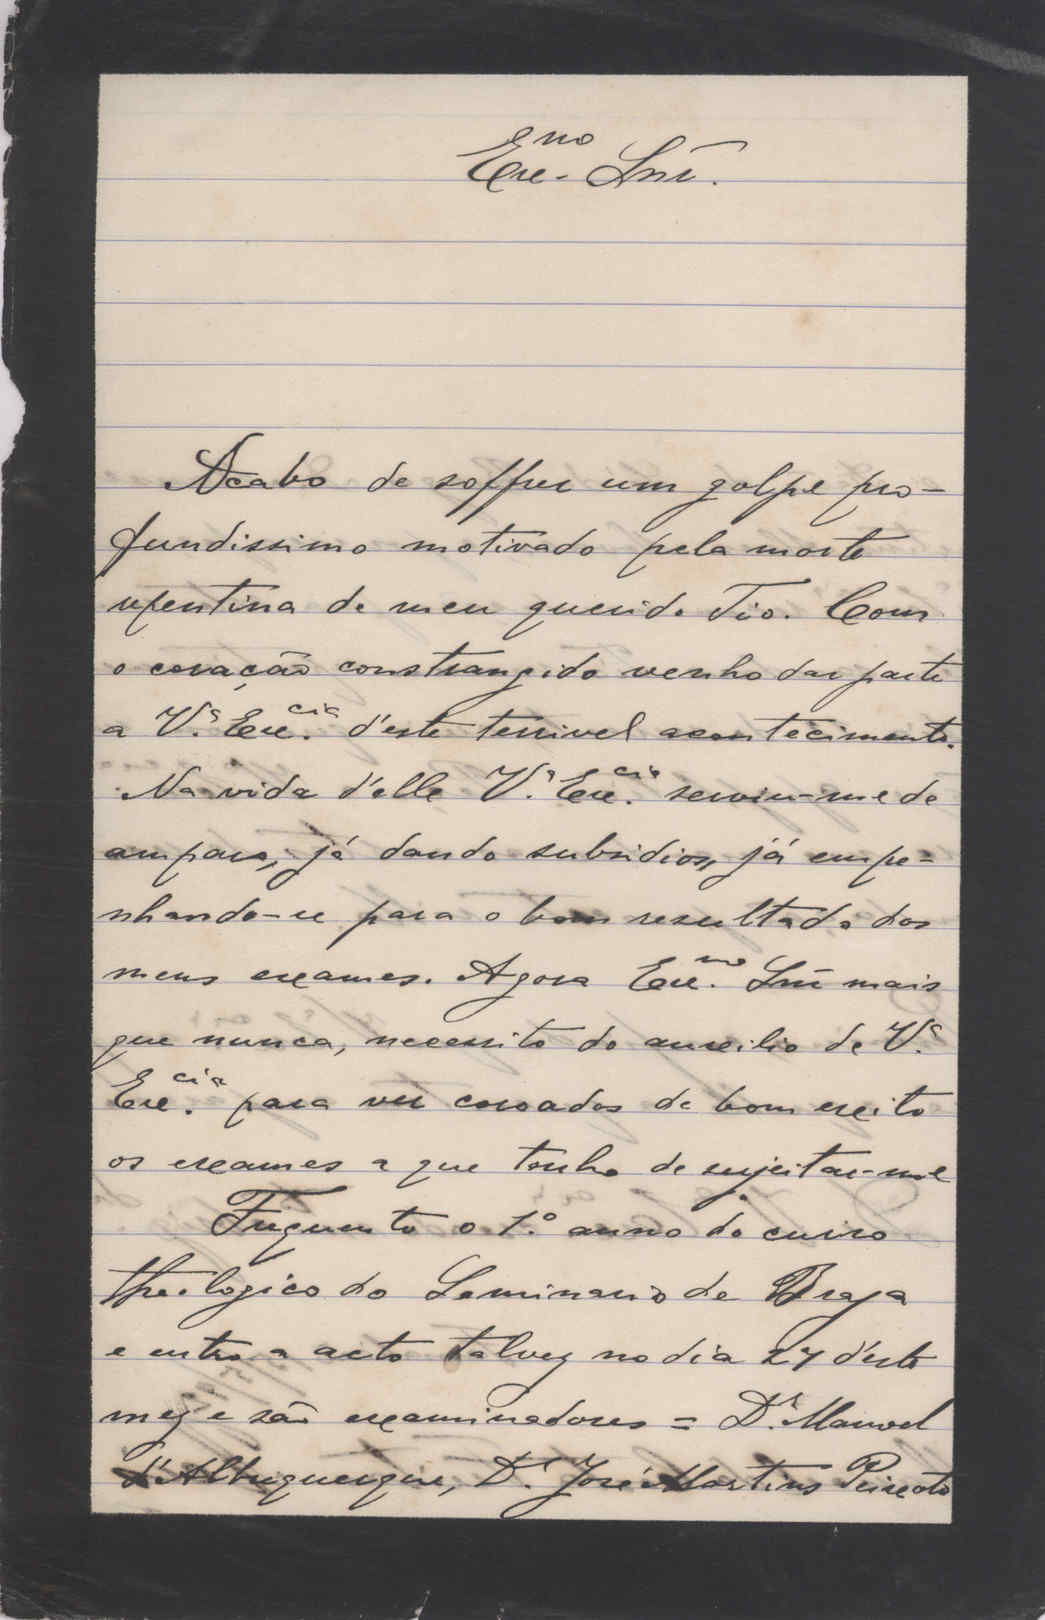 Exc.mo Snr.
Acabo de soffrer um golpe pro-
fundissimo motivado pela morte
repentina de meu querido Tio. Com
o coração constrangido venho dar parte
a V.ª Exc.cia d'este terrivel acontecimento.
Na vida d'elle V.ª Exc.cia serviu-me de
amparo, já dando subsidios, já empe-
nhando-se para o bom resultado dos
meus exames. Agora Exc.mo Snr mais
que nunca, necessito do auxilio de V.ª
Exc.cia para ver coroados de bom exito
os exames a que tenho de sujeitar-me
Frequento o 1.º anno do curso
theologico do Seminario de Braga
e entro a acto talvez no dia 27 d'este
mez e são examinadores = Dr. Manoel
d'Albuquerque, Dr. José Martins Peixoto